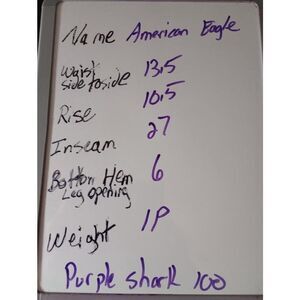 Name American Eagle
Waist side to side 13.5
Rise 10.5
Inseam 27
Bottom Hem Leg opening 6
Weight 1P
Purple shark 100